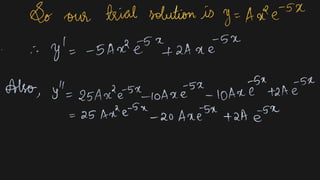 So our trial solution is y = Ax²e⁻⁵ˣ
∴ y' = -5Ax²e⁻⁵ˣ + 2Axe⁻⁵ˣ
Also, y'' = 25Ax²e⁻⁵ˣ - 10Axe⁻⁵ˣ - 10Axe⁻⁵ˣ + 2Ae⁻⁵ˣ
= 25Ax²e⁻⁵ˣ - 20Axe⁻⁵ˣ + 2Ae⁻⁵ˣ